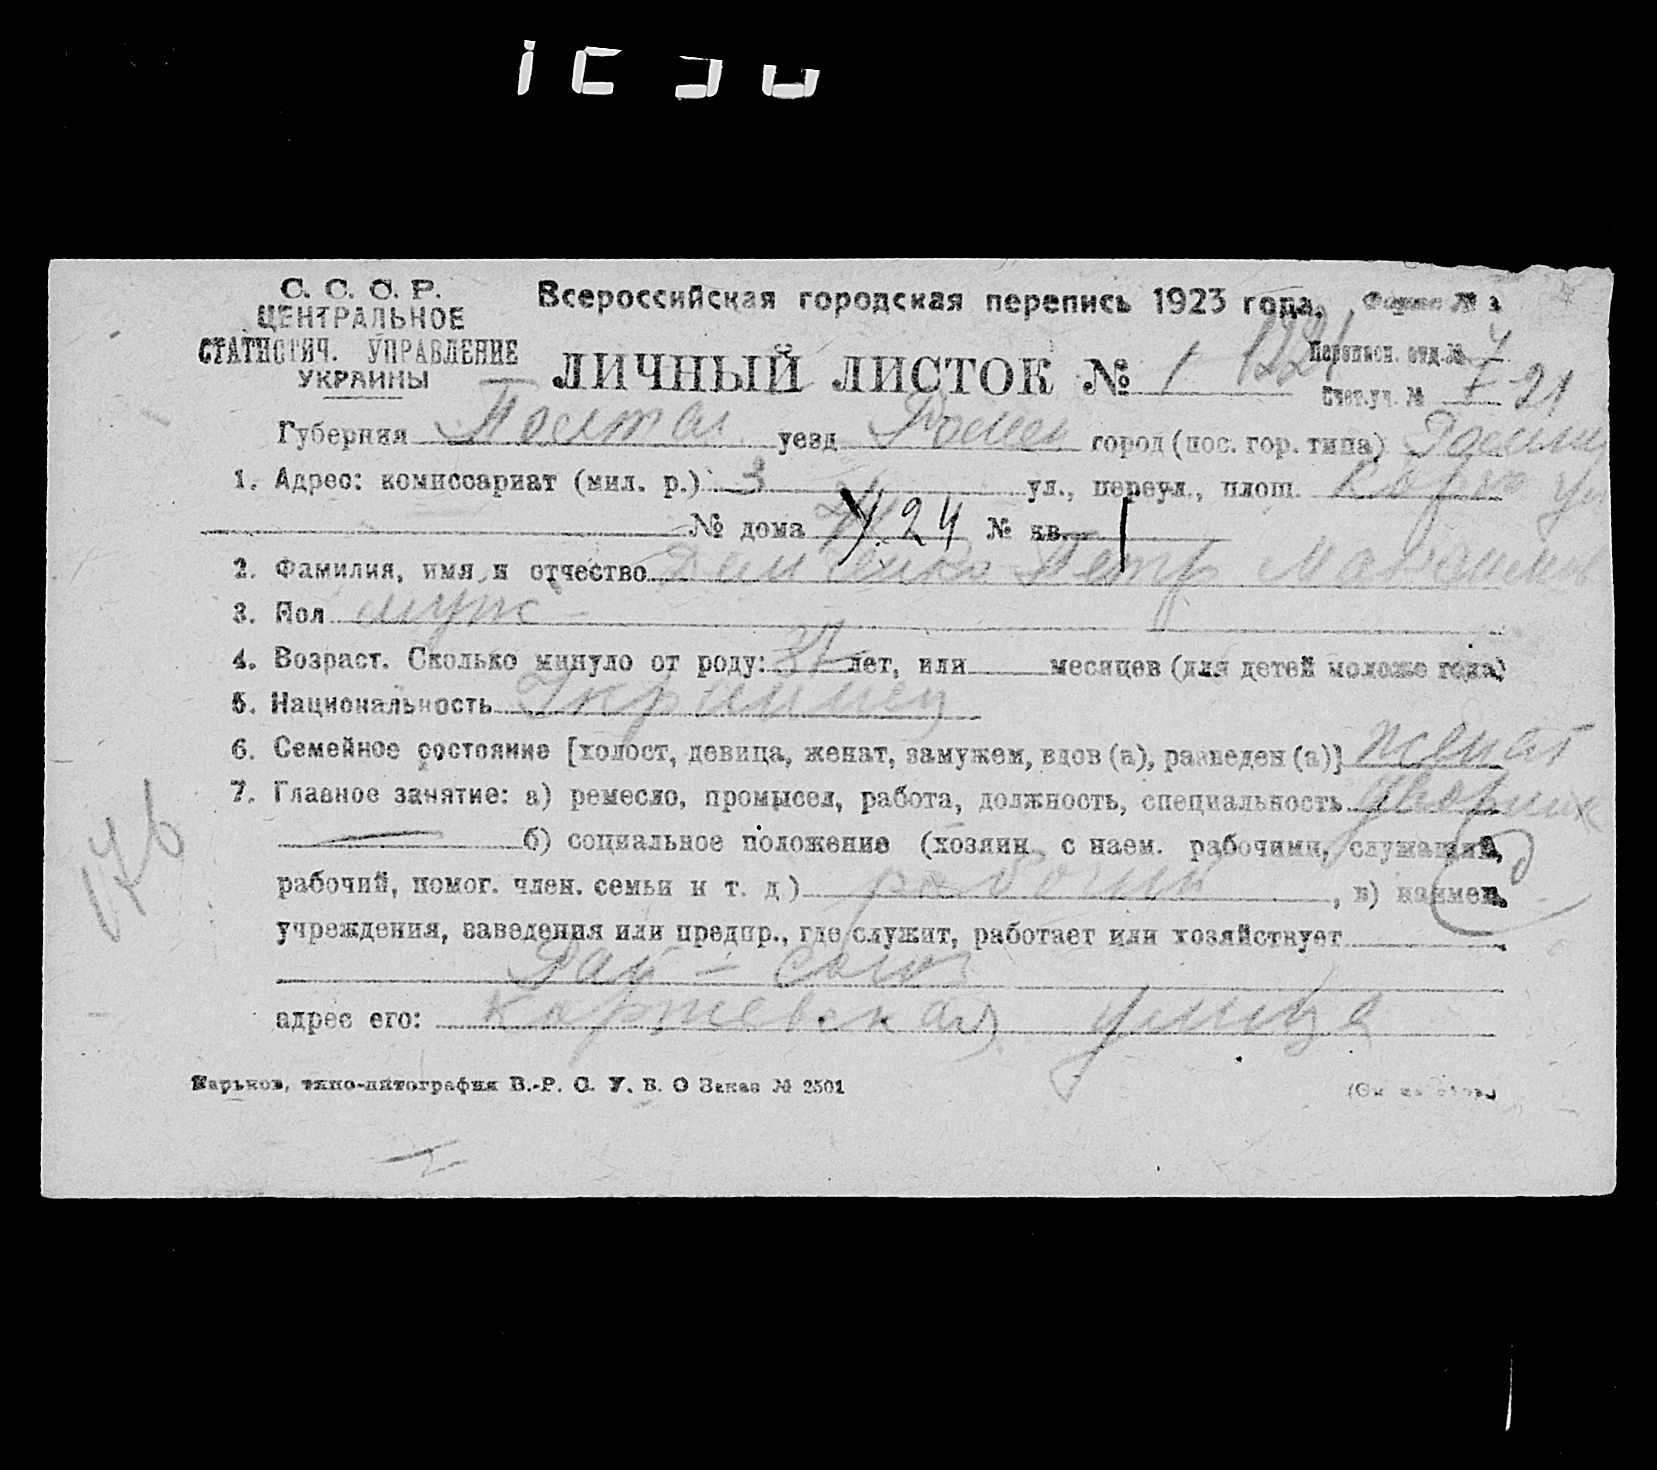 С. С. С. Р.
ЦЕНТРАЛЬНОЕ
СТАТИСТИЧ. УПРАВЛЕНИЕ
УКРАИНЫ
Всероссийская городская перепись 1923 года. Форма № 1
ЛИЧНЫЙ ЛИСТОК № 1
Переписн. отд. №
Счет. уч. № 21
Губерния Полтав уезд Ромен город (пос. гор. типа) Ромны
1. Адрес: комиссариат (мил. р.) 3 ул., переул., площ.
№ дома 24 № кв. 1
2. Фамилия, имя и отчество Демченко Петр Максимов
3. Пол муж
4. Возраст. Сколько минуло от роду: лет, или месяцев (для детей моложе года)
5. Национальность Украинец
6. Семейное состояние [холост, девица, женат, замужем, вдов (а), разведен (а)] женат
7. Главное занятие: а) ремесло, промысел, работа, должность, специальность дворник
б) социальное положение (хозяин с наем. рабочими, служащий,
рабочий, помог. член. семьи и т. д.) рабочий, в) наимен.
учреждения, заведения или предпр., где служит, работает или хозяйствует
Рай-союз
адрес его: улица
Харьков, типо-литография В.-Р. С. У. В. О Заказ № 2501
176